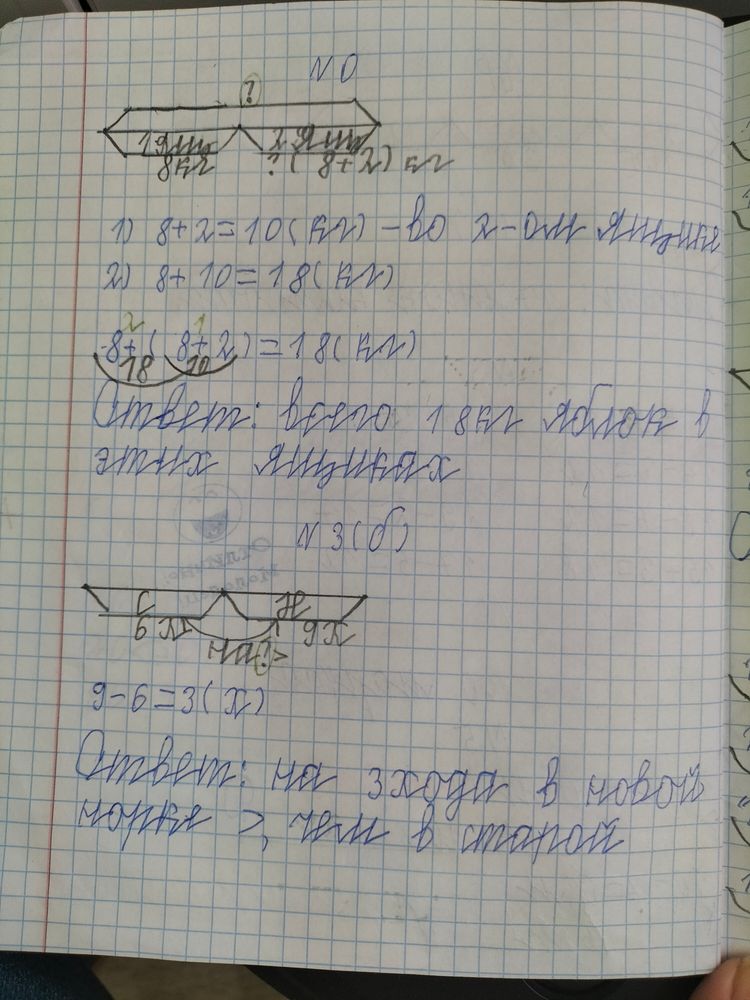 N 0
?
1 ящ. 2 ящ.
8 кг ? (8+2) кг
1) 8+2=10(кг) - во 2-ом ящике
2) 8+10=18(кг)
2 1
8+(8+2)=18(кг)
18 10
Ответ: всего 18кг яблок в
этих ящиках
N 3(б)
С Н
6 9
на ? >
9-6=3(х)
Ответ: на 3хода в новой
норке >, чем в старой